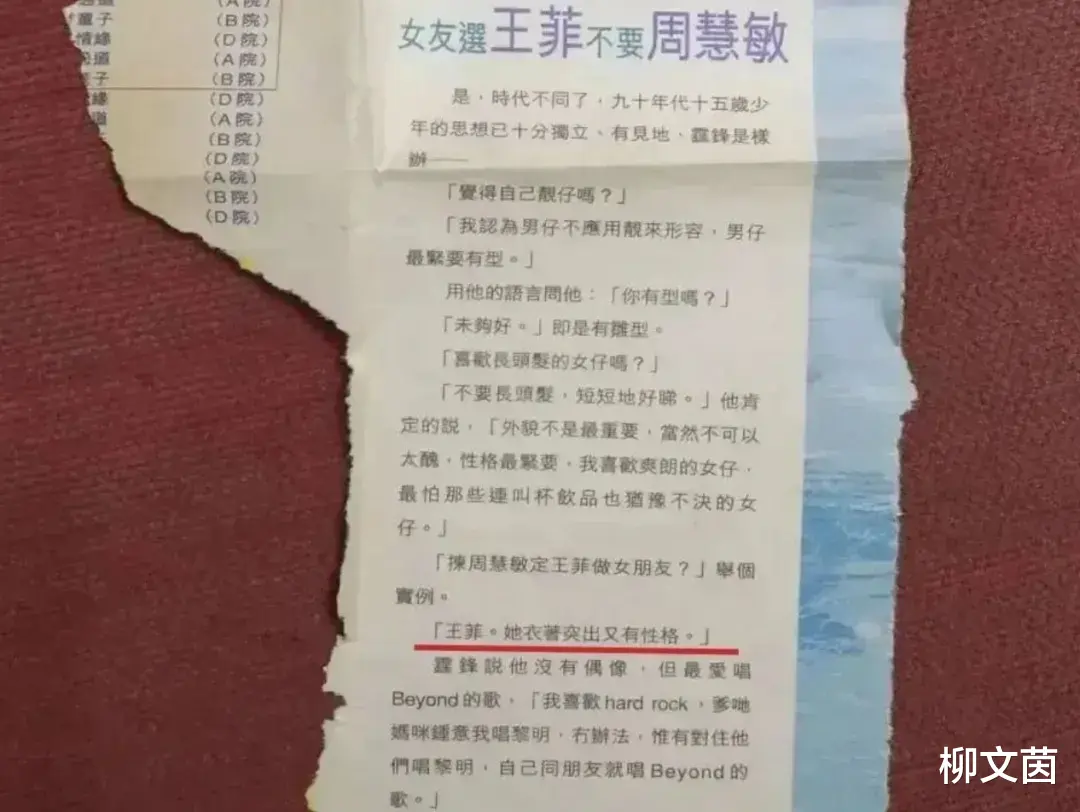 (A院)
童子 (B院)
情緣 (D院)
(A院)
子 (B院)
緣 (D院)
道 (A院)
(B院)
(D院)
(A院)
(B院)
(D院)
女友選王菲不要周慧敏
是，時代不同了，九十年代十五歲少
年的思想已十分獨立、有見地、霆鋒是樣
辦——
「覺得自己靚仔嗎？」
「我認為男仔不應用靚來形容，男仔
最緊要有型。」
用他的語言問他：「你有型嗎？」
「未夠好。」即是有雛型。
「喜歡長頭髮的女仔嗎？」
「不要長頭髮，短短地好睇。」他肯
定的說，「外貌不是最重要，當然不可以
太醜，性格最緊要，我喜歡爽朗的女仔，
最怕那些連叫杯飲品也猶豫不決的女
仔。」
「揀周慧敏定王菲做女朋友？」舉個
實例。
「王菲。她衣著突出又有性格。」
霆鋒說他沒有偶像，但最愛唱
Beyond的歌，「我喜歡hard rock，爹哋
媽咪鍾意我唱黎明，冇辦法，惟有對住他
們唱黎明，自己同朋友就唱Beyond的
歌。」
柳文茵